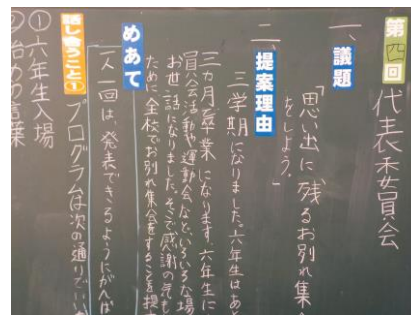 第四回 代表委員会
一、議題
「思い出に残るお別れ集
をしよう。」
二、提案理由
三学期になりました。六年生はあと
三カ月で卒業になります。六年生に
員会活動や運動会など、いろいろな場
お世話になりました。そこで感謝の気も
ために、全校でお別れ集会をすることを提
めあて
一人一回は、発表できるようにがんば
話し合うこと①
プログラムは次の通りでいい
①六年生入場
②始めの言葉